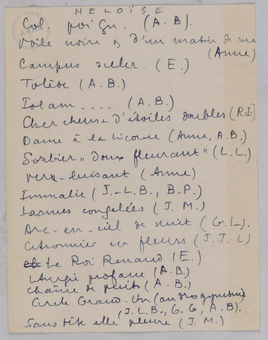 HELOÏSE
Col. poign. (A.B).
Voile noire d'un matin de ma
(Anne)
Campus sceler. (E.)
Tolède (A.B.)
Islam .... (A.B.)
Chercheuse d'étoiles doubles (R.I)
Dame à la licorne (Anne, A.B.)
Sorbier "doux fleurant" (L.L.)
Vers-luisant (Anne)
Immalie (J.-L.B., B.P.)
Larmes congelées (J.M.)
Arc-en-ciel de nuit (G.L).
Citronnier en fleurs (J.J.L)
Le Roi Renaud (E.)
Liturgie profane (A.B.)
Chaîne de puits (A.B.)
Cercle Grand-Un (androgynture)
(J.L.B., G.G, A.B).
Sans tête elle pleure (J.M.)